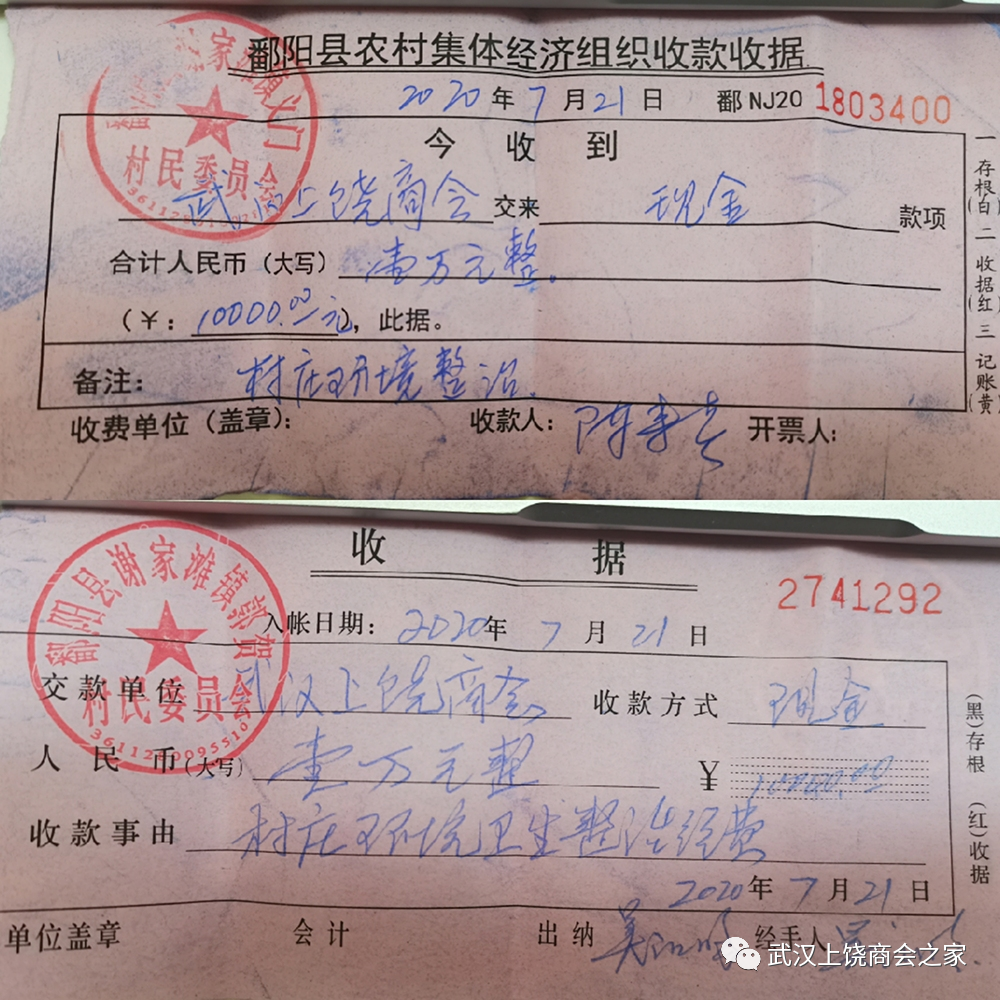 鄱阳县农村集体经济组织收款收据
2020年7月21日 鄱NJ20 1803400
今收到
武汉上饶商会 交来 现金 款项
合计人民币（大写）壹万元整。
（￥：10000.00元），此据。
备注：村庄环境整治.
收费单位（盖章）： 收款人： 开票人：
一存根（白） 二收据（红） 三记账（黄）
村民委员会
收据
2741292
入帐日期：2020年7月21日
交款单位 武汉上饶商会 收款方式 现金
人民币（大写）壹万元整 ￥10000.00
收款事由 村庄环境卫生整治经费
2020年7月21日
单位盖章 会计 出纳 经手人
（黑）存根 （红）收据
鄱阳县谢家滩镇郭贺
村民委员会
武汉上饶商会之家